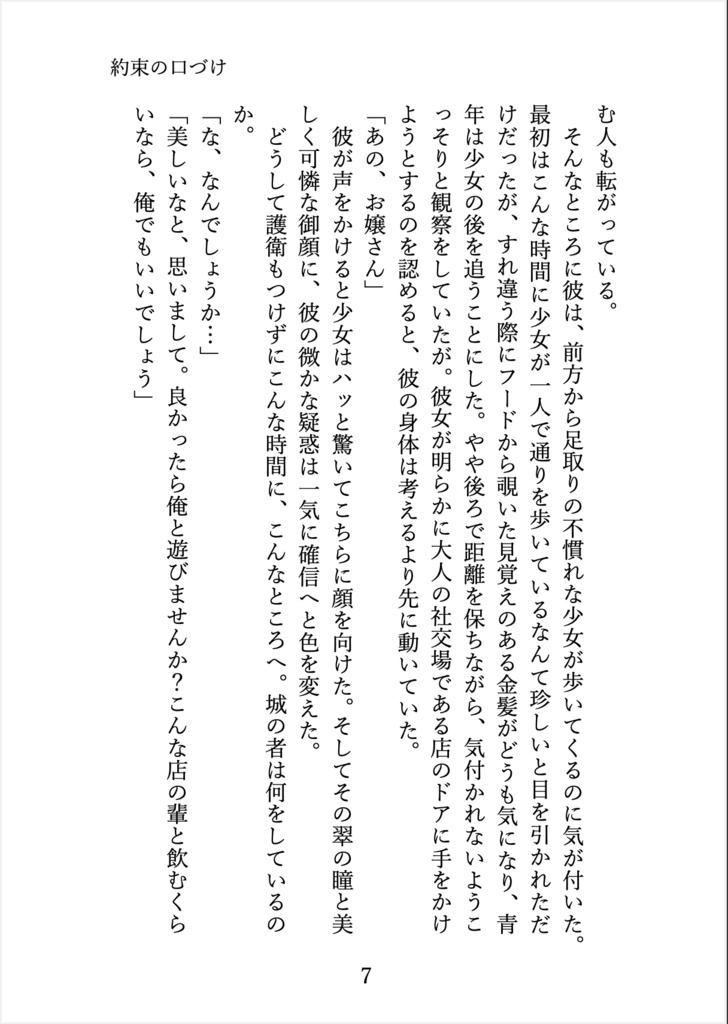 約束の口づけ
む人も転がっている。
そんなところに彼は、前方から足取りの不慣れな少女が歩いてくるのに気が付いた。
最初はこんな時間に少女が一人で通りを歩いているなんて珍しいと目を引かれただ
けだったが、すれ違う際にフードから覗いた見覚えのある金髪がどうも気になり、青
年は少女の後を追うことにした。やや後ろで距離を保ちながら、気付かれないようこ
っそりと観察をしていたが。彼女が明らかに大人の社交場である店のドアに手をかけ
ようとするのを認めると、彼の身体は考えるより先に動いていた。
「あの、お嬢さん」
彼が声をかけると少女はハッと驚いてこちらに顔を向けた。そしてその翠の瞳と美
しく可憐な御顔に、彼の微かな疑惑は一気に確信へと色を変えた。
どうして護衛もつけずにこんな時間に、こんなところへ。城の者は何をしているの
か。
「な、なんでしょうか…」
「美しいなと、思いまして。良かったら俺と遊びませんか？こんな店の輩と飲むくら
いなら、俺でもいいでしょう」
7